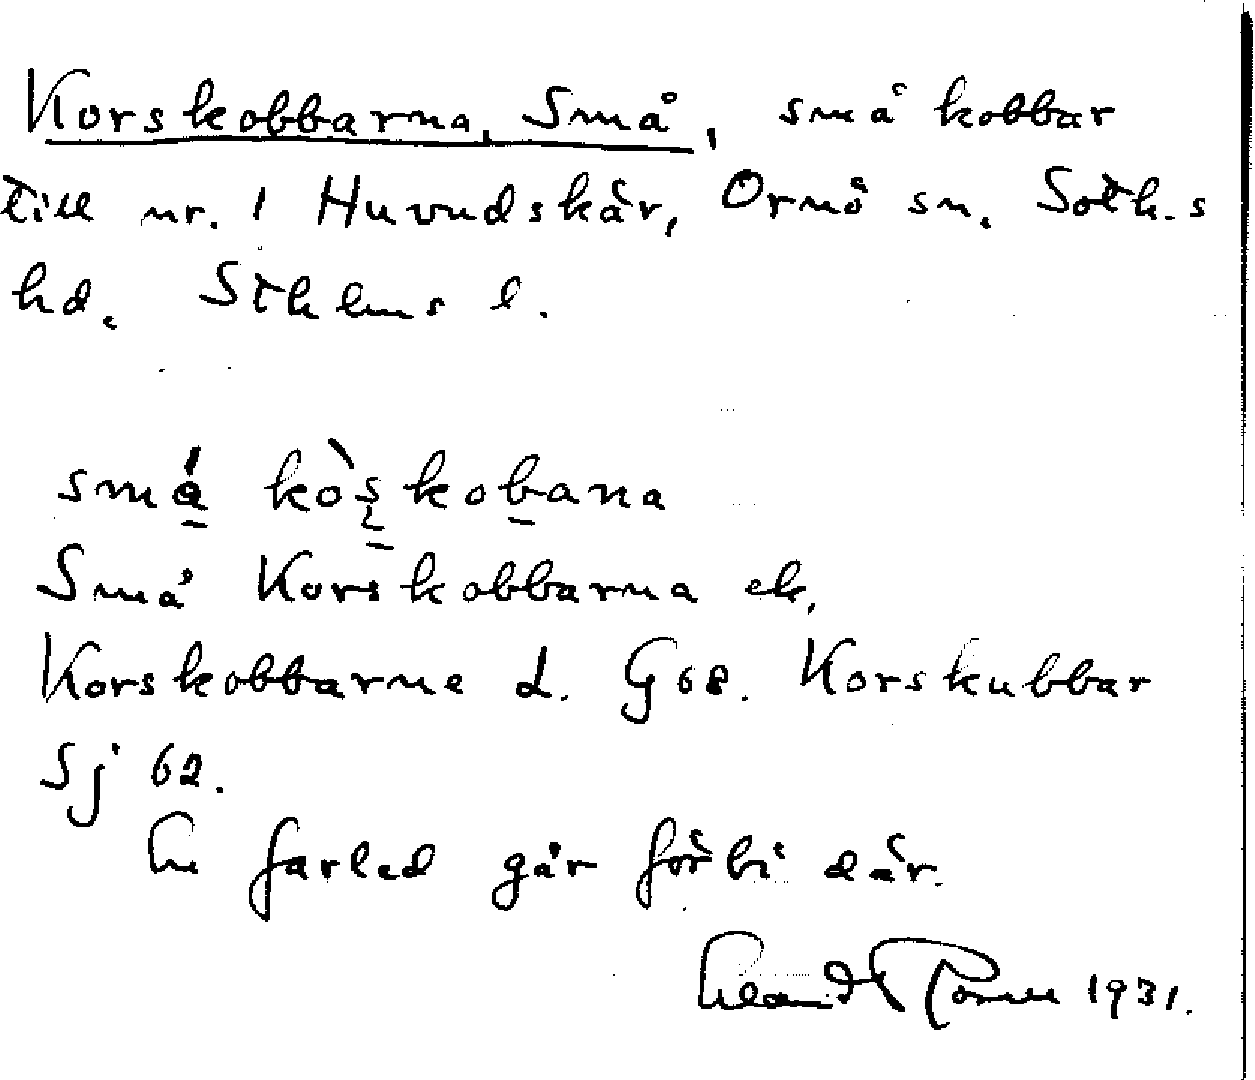 Korskobbarna, Små, små kobbar
till nr. 1 Huvudskär, Ornö sn. Soth.s
hd. Sthlms l.
smǻ̱ kò̀ʂkoḇana
Små Korskobbarna ek.
Korskobbarne d. G 68. Korskubbar
Sj 62.
En farled går förbi där.
1931.